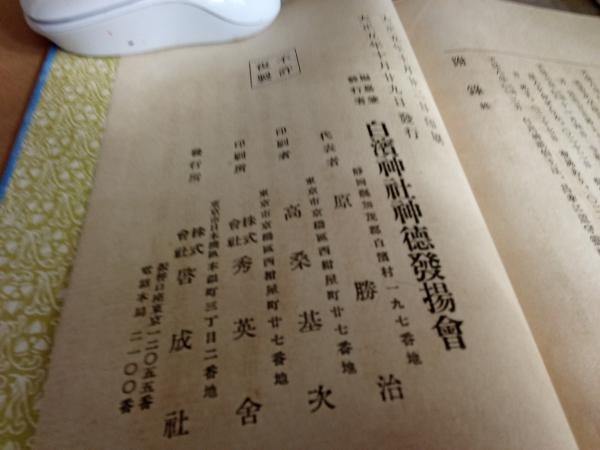 附錄 終
大正五年十月廿九日發行
不許複製
白濱神社神德發揚會
靜岡縣加茂郡白濱村一九七番地
代表者 原勝治
東京市京橋區西紺屋町廿七番地
印刷者 高桑基次
東京市京橋區西紺屋町廿七番地
印刷所 株式會社 秀英舍
東京市日本橋區本銀町三丁目二番地
發行所 株式會社 啓成社
振替口座東京一二〇五五番
電話本局二一〇〇番